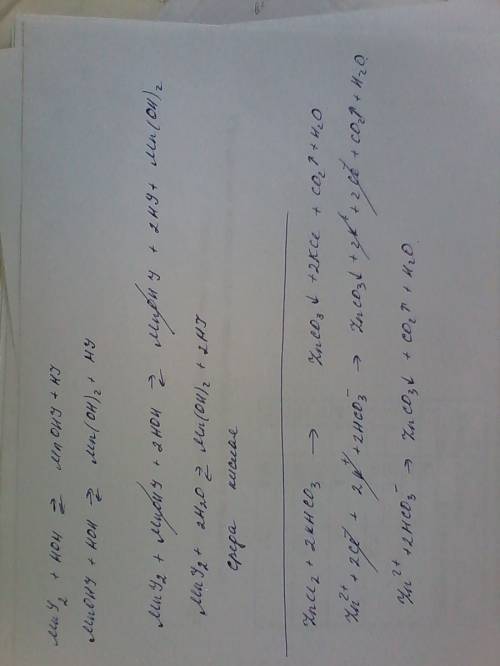 MnY₂ + HOH ⇄ MnOHY + HY
MnOHY + HOH ⇄ Mn(OH)₂ + HY
MnY₂ + MnOHY + 2HOH ⇄ MnOHY + 2HY + Mn(OH)₂
MnY₂ + 2H₂O ⇄ Mn(OH)₂ + 2HY
среда кислая
ZnCl₂ + 2KHCO₃ → ZnCO₃↓ + 2KCl + CO₂↑ + H₂O
Zn²⁺ + 2Cl⁻ + 2K⁺ + 2HCO₃⁻ → ZnCO₃↓ + 2K⁺ + 2Cl⁻ + CO₂↑ + H₂O
Zn²⁺ + 2HCO₃⁻ → ZnCO₃↓ + CO₂↑ + H₂O